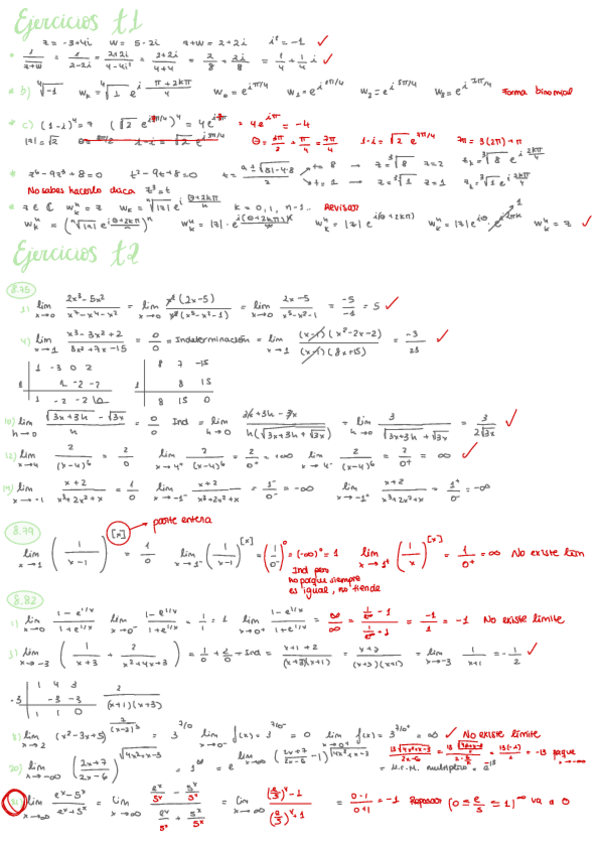 Ejercicios t1
z = -3+4i   w = 5-2i   z+w = 2+2i   i² = -1 ✓
* 1/(z+w) = 1/(2-2i) = (2+2i)/(4-4i²) = (2+2i)/(4+4) = 2/8 + 2i/8 = 1/4 + 1/4 i ✓
b) ⁴√-1   w_k = ⁴√1 e^(i (π+2kπ)/4)   w₀ = e^(iπ/4)   w₁ = e^(i3π/4)   w₂ = e^(i5π/4)   w₃ = e^(i7π/4)   Forma binomial
* c) (1-i)⁴ = z   (√2 e^(i7π/4))⁴ = 4e^(iπ) = 4e^(iπ) = -4
|z| = √2   θ = 3π/2 + π/4 = 7π/4   1-i = √2 e^(7π/4)   7π = 3(2π)+π
* z⁶-9z³+8=0   t²-9t+8=0   t = (9±√(81-4·8))/2   t=8 → z=³√8   z=2   z_k = ³√8 e^(i 2kπ/3)
t=1 → z=³√1   z=1   z_k = ³√1 e^(i 2kπ/3)
No sabes hacerlo   z³=t
* z ∈ ℂ   w_kⁿ = z   w_k = ⁿ√|z| e^(i (θ+2kπ)/n)   k=0,1,n-1..   Revisar
w_kⁿ = (ⁿ√|z| e^(i(θ+2kπ)/n))ⁿ   w_kⁿ = |z|·e^(i(θ+2kπ)n/n)   w_kⁿ = |z| e^(i(θ+2kπ))   w_kⁿ = |z| e^(iθ)·e^(i2πk)   1   w_kⁿ = z ✓
Ejercicios t2
8.75
lim x→0 (2x³-5x²)/(x⁷-x⁴-x²) = lim x→0 x²(2x-5)/x²(x⁵-x²-1) = lim x→0 (2x-5)/(x⁵-x²-1) = -5/-1 = 5 ✓
4) lim x→1 (x³-3x²+2)/(8x²+7x-15) = 0/0 = Indeterminación = lim x→1 (x-1)(x²-2x-2)/(x-1)(8x+15) = -3/23 ✓
1 -3 0 2   8 7 -15
1   1 -2 -2   1   8 15
1 -2 -2 0   8 15 0
10) lim h→0 (√(3x+3h) - √3x)/h = 0/0 Ind = lim h→0 (3x+3h-3x)/h(√(3x+3h)+√3x) = lim h→0 3/(√(3x+3h)+√3x) = 3/2√3x ✓
12) lim x→4 2/(x-4)⁶ = 2/0   lim x→4⁺ 2/(x-4)⁶ = 2/0⁺ = +∞   lim x→4⁻ 2/(x-4)⁶ = 2/0⁺ = ∞ ✓
lim x→-1 (x+2)/(x³+2x²+x) = 1/0   lim x→-1⁻ (x+2)/(x³+2x²+x) = 1⁻/0⁻ = -∞   lim x→-1⁺ (x+2)/(x³+2x²+x) = 1⁺/0⁻ = -∞
8.79
[x] → parte entera
lim x→1 (1/(x-1))^[x] = 1/0   lim x→1⁻ (1/(x-1))^[x] = (1/0⁻)⁰ = (-∞)⁰ = 1   lim x→1⁺ (1/x)^[x] = 1/0⁺ = ∞   No existe lim
Ind pero
no porque siempre
es igual, no tiende
8.82
1) lim x→0 (1-e^(1/x))/(1+e^(1/x))   lim x→0⁻ (1-e^(1/x))/(1+e^(1/x)) = 1/1 = 1   lim x→0⁺ (1-e^(1/x))/(1+e^(1/x)) = ∞/∞ = (1/e^∞ - 1)/(1/e^∞ + 1) = -1/1 = -1   No existe límite
3) lim x→-3 (1/(x+3) + 2/(x²+4x+3)) = 1/0 + 2/0 → Ind = (x+1+2)/(x+3)(x+1) = (x+3)/(x+3)(x+1) = lim x→-3 1/(x+1) = -1/2 ✓
1 4 3   2/(x+1)(x+3)
-3   -3 -3
1 1 0
8) lim x→2 (x²-3x+5)^(7/(x-2)³) = 3^(7/0)   lim x→0⁻ f(x) = 3^(7/0⁻) = 0   lim x→0⁺ f(x) = 3^(7/0⁺) = ∞ ✓ No existe límite
20) lim x→-∞ ((2x+7)/(2x-6))^√(4x²+x-3) = 1^∞ = e^(lim x→-∞ ((2x+7)/(2x-6) - 1)√(4x²+x-3))   = -13 porque x→-∞
lim x→∞ (eˣ-5ˣ)/(eˣ+5ˣ) = lim x→∞ (eˣ/5ˣ - 5ˣ/5ˣ)/(eˣ/5ˣ + 5ˣ/5ˣ) = lim x→∞ ((e/5)ˣ-1)/((e/5)ˣ+1) = (0-1)/(0+1) = -1   Repasar (0 ≤ e/5 ≤ 1)^∞ va a 0